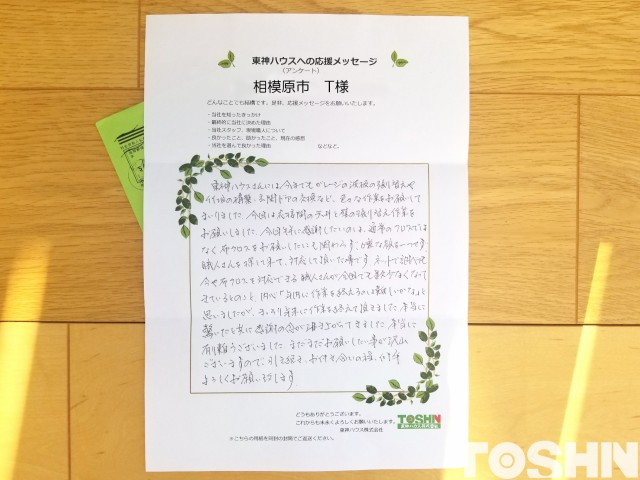 東神ハウスへの応援メッセージ
（アンケート）
相模原市　T様
どんなことでも結構です。是非、応援メッセージをお願いいたします。
・当社を知ったきっかけ
・最終的に当社に決めた理由
・当社スタッフ、現場職人について
・良かったこと、助かったこと、現在の感想
・当社を選んで良かった理由　　　などなど。
東神ハウスさんには今までもガレージの波板の張り替えや
玄関ドアの交換など、色々な作業をお願いして
まいりました。今回は応接間の天井と壁の張り替え作業を
お願いしました。今回特に感謝したいのは、通常のクロスでは
なく布クロスをお願いしたにも関わらず、嫌な顔を一つせず
職人さんを探して来て、対応して頂いた事です。ネットで調べても
今や布クロスを対応できる職人さんが全国でも数少なくなって
きているとのこと、内心「年内に作業を終えるのは難しいかな」と
思いましたが、きっちり年内に作業を終えて頂きました。本当に
驚いたと共に感謝の念が湧き上がってきました。本当に
有り難うございました。まだまだお願いしたい事が沢山
ございますので、引き続き、お付き合いの程、何卒
よろしくお願いします
どうもありがとうございます。
これからも末永くよろしくお願いいたします。
東神ハウス株式会社
TOSHIN
※こちらの用紙を同封の封筒でご返送ください。
TOSHIN